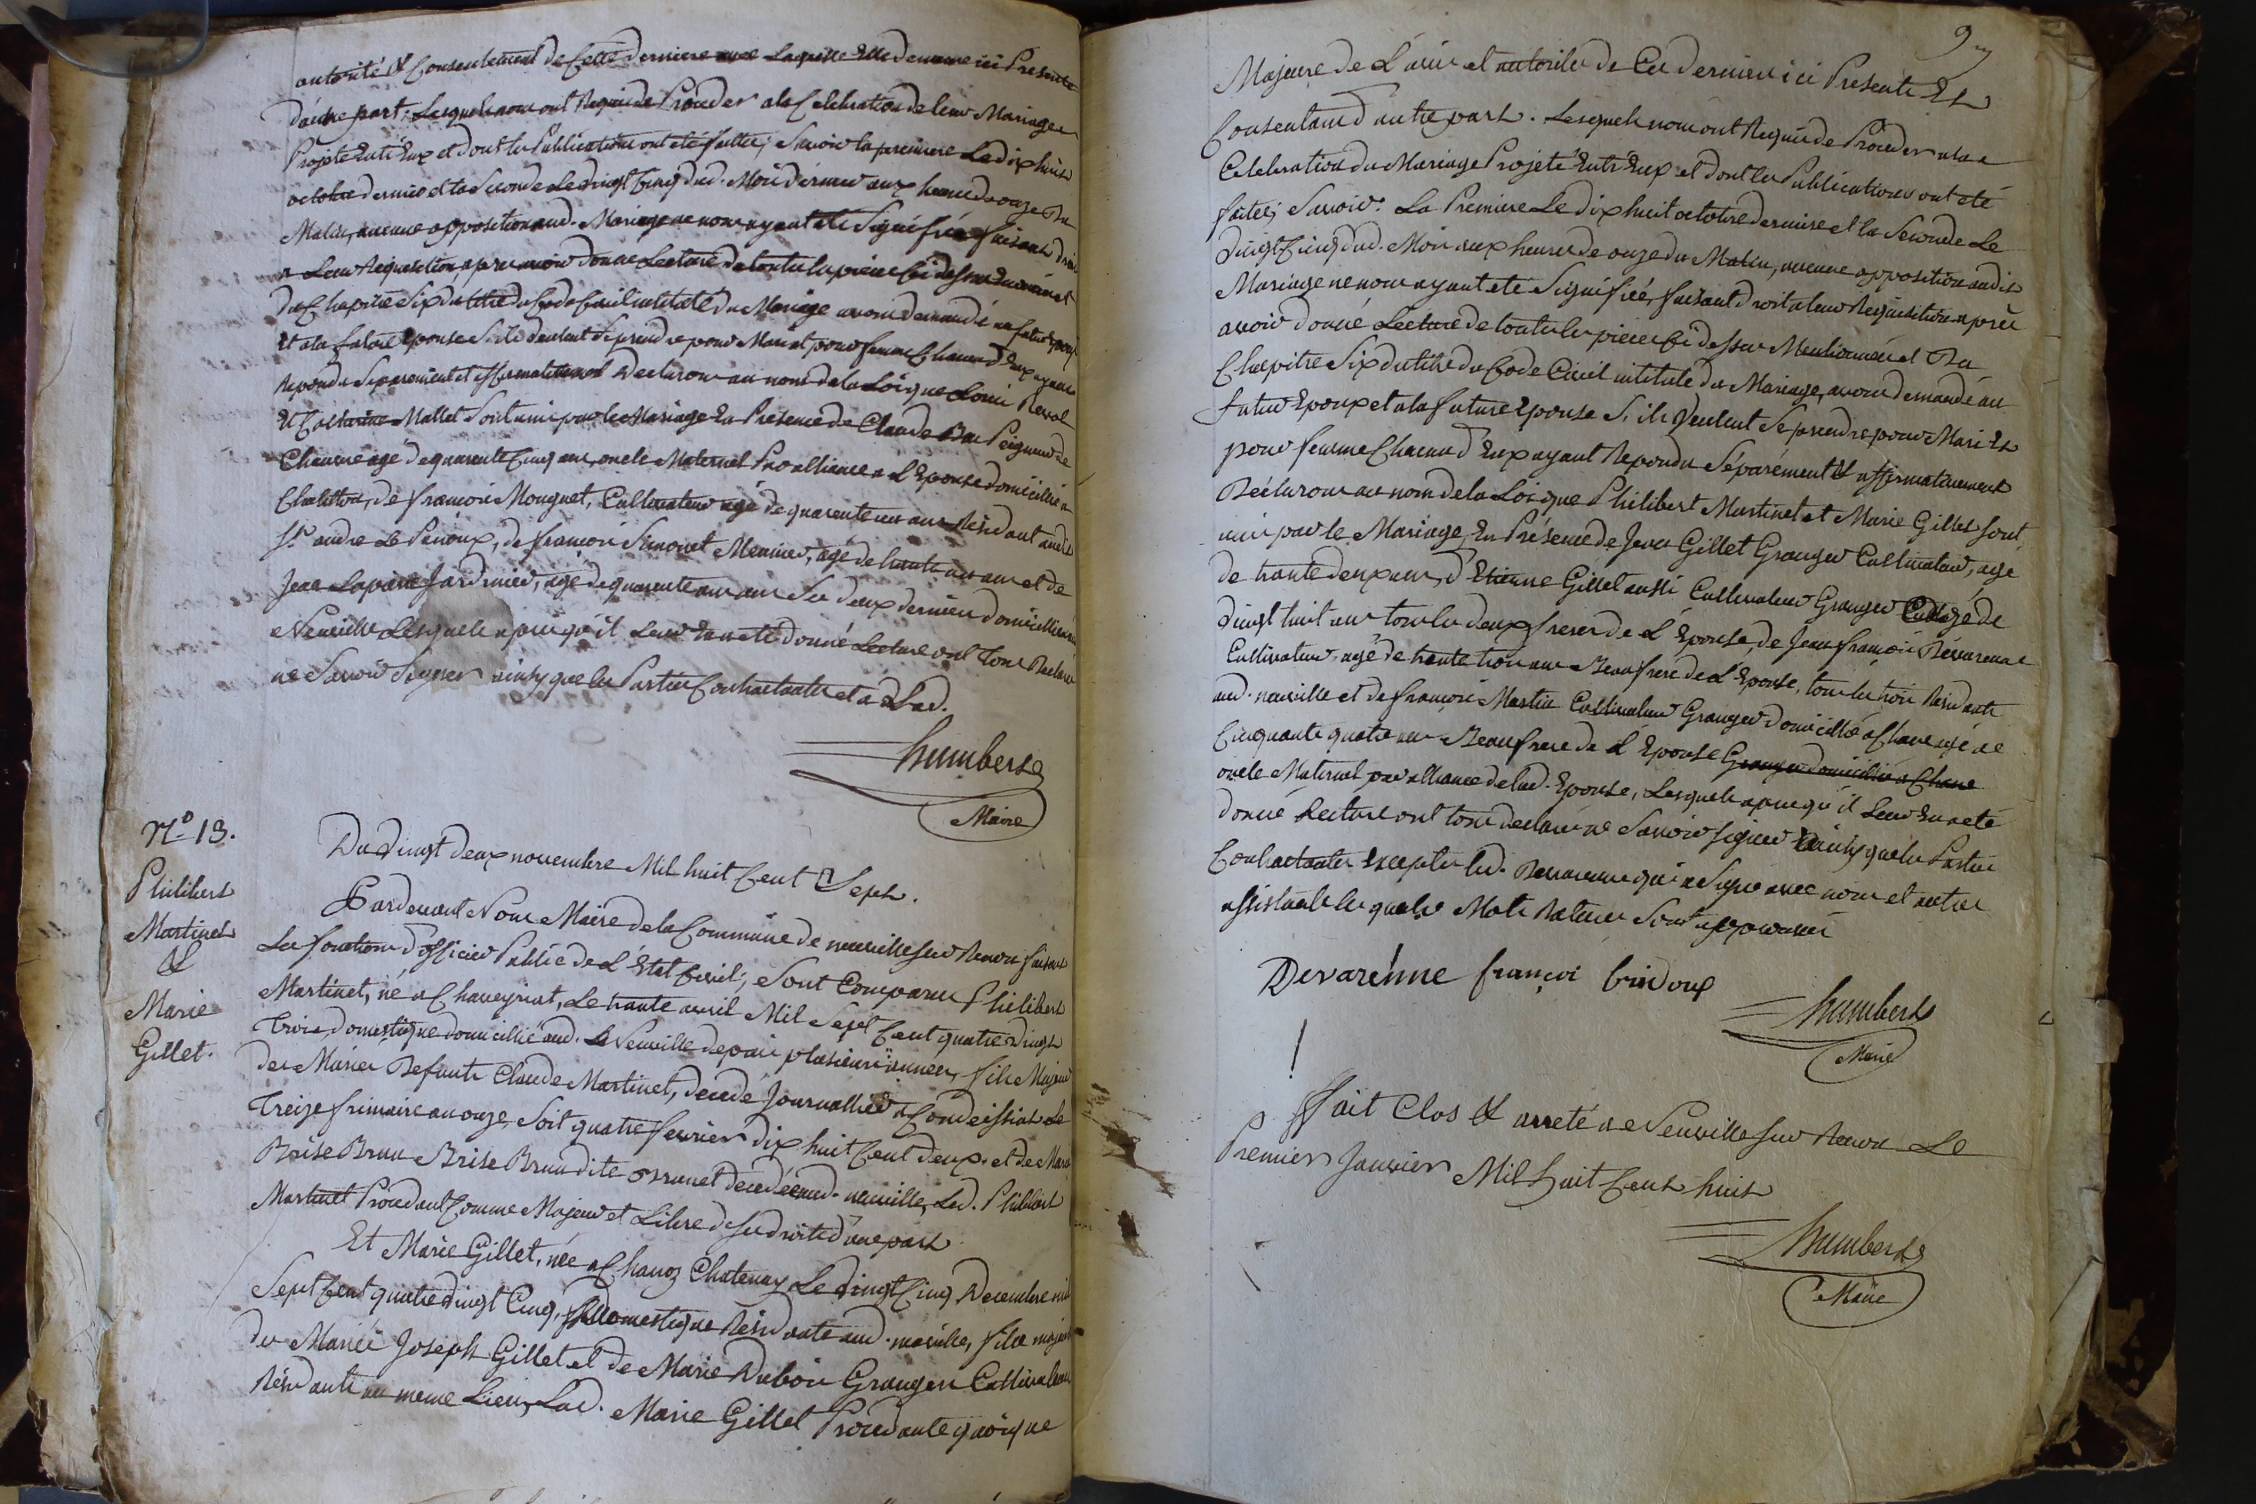 autorité & Consentement de Cette derniere avec Laquelle Elle demeure ici Presente
d'autre part; Lesquels nous ont Requis de Proceder a la Celebration de leur Mariage
Projeté Entr'Eux et dont les Publications ont été faites; Savoir la premiere Le dix huit
octobre dernier et la Seconde Le vingt Cinq dud. Mois dernier aux heures de onze Du
Matin, aucune opposition aud. Mariage ne nous ayant été Signifiée faisant droit
a Leur Requisition, apres avoir donné Lecture de toutes les pieces Ci dessus Enoncées et
du Chapitre Six du titre du Code Civil intitulé du Mariage avons demandé au futur Epoux
Et a la future Epouse S'ils veulent Se prendre pour Mari et pour femme Chacun d'Eux ayant
Repondu Separement et affirmativement Declarons au nom de la Loi que Louis Revol
Et Catherine Mallet Sont unis par le Mariage En Presence de Claude Peigneur de
Chanvre agé de quarente Cinq ans, oncle Maternel Par alliance a L'Epouse domicilié a
Chatillon, de françois Monguet, Cultivateur agé de quarente un ans Résidant audit
St. andré Le Panoux, de françois Simonet Meunier, agé de trente un ans et de
Jean Lapierre Jardinier, agé de quarente un ans Les deux derniers domicilliés a
Neuville Lesquels apres qu'il Leur En a été donné Lecture ont Tous Declaré
ne Savoir Signer ainsy que les Parties Contractantes et a Lad.
humbert
Maire
No. 13.
Philibert
Martinet
&
Marie
Gillet.
Du Vingt deux novembre Mil huit Cent Sept.
Pardevant Nous Maire de la Commune de neuville sur Renon faisant
Les fonctions d'officier Public de L'Etat Civil, Sont Comparus Philibert
Martinet, né a Chaveyriat, Le trente avril Mil Sept Cent quatre Vingt
Trois, domestique domicillié aud. Neuville depuis plusieurs années, fils Majeur
des Mariés Defunts Claude Martinet, decedé Journallier a Condeissiat Le
Treize frimaire an onze, Soit quatre fevrier dix huit Cent deux et de Marie
Brise Brun Brise Brun dite Brunet decedée aud. neuville, Led. Philibert
Martinet Procedant Comme Majeur et Libre de Ses droits d'une part
Et Marie Gillet, née a Chanoz Chatenay Le Vingt Cinq Decembre mil
Sept Cent quatre Vingt Cinq, domestique Résidante aud. neuville, fille majeure
des Mariés Joseph Gillet et de Marie Dubois Grangers Cultivateurs
Résidants au meme Lieu, Lad. Marie Gillet Procedante quoique
9
Majeure de L'avis et autorité de Ces derniers ici Presents Et
Consentants d'autre part. Lesquels nous ont Requis de Proceder a la
Celebration du Mariage Projeté Entr'Eux et dont les Publications ont été
faites; Savoir: La Premiere Le dix huit octobre dernier et la Seconde Le
Vingt Cinq dud. Mois aux heures de onze du Matin, aucune opposition audit
Mariage ne nous ayant été Signifiée, faisant droit a leur Requisition apres
avoir donné Lecture de toutes les pieces Ci dessus Mentionnées et Du
Chapitre Six du titre du Code Civil intitulé du Mariage, avons demandé au
futur Epoux et a la future Epouse S'ils Veulent Se prendre pour Mari Et
pour femme Chacun d'Eux ayant Repondu Séparément & affirmativement
Déclarons au nom de la Loi que Philibert Martinet et Marie Gillet Sont
unis par le Mariage, En Présence de Jean Gillet Granger Cultivateur, agé
de trente deux ans, d'Etienne Gillet aussi Cultivateur Granger agé de
Vingt huit ans tous les deux freres de L'Epouse, de Jean françois Dévarenne
Cultivateur, agé de trente trois ans Beaufrere de L'Epouse, tous les trois Résidants
aud. neuville et de françois Martin Cultivateur Granger domicillié a Chane agé de
Cinquante quatre ans Beaufrere de L'Epouse Granger domicillié a Chane
oncle Maternel par alliance de lad. Epouse, Lesquels apres qu'il Leur En a été
donné Lecture ont tous declaré ne Savoir signer ainsy que les Parties
Contractantes Excepté led. Devarenne qui a Signé avec nous et autres
assistants les quatre Mots Raturés Sont approuvés
Devarénne françoi brindoux
humbert
Maire
Fait Clos & arreté a Neuville sur Renon Le
Premier Janvier Mil huit Cent huit
humbert
Maire